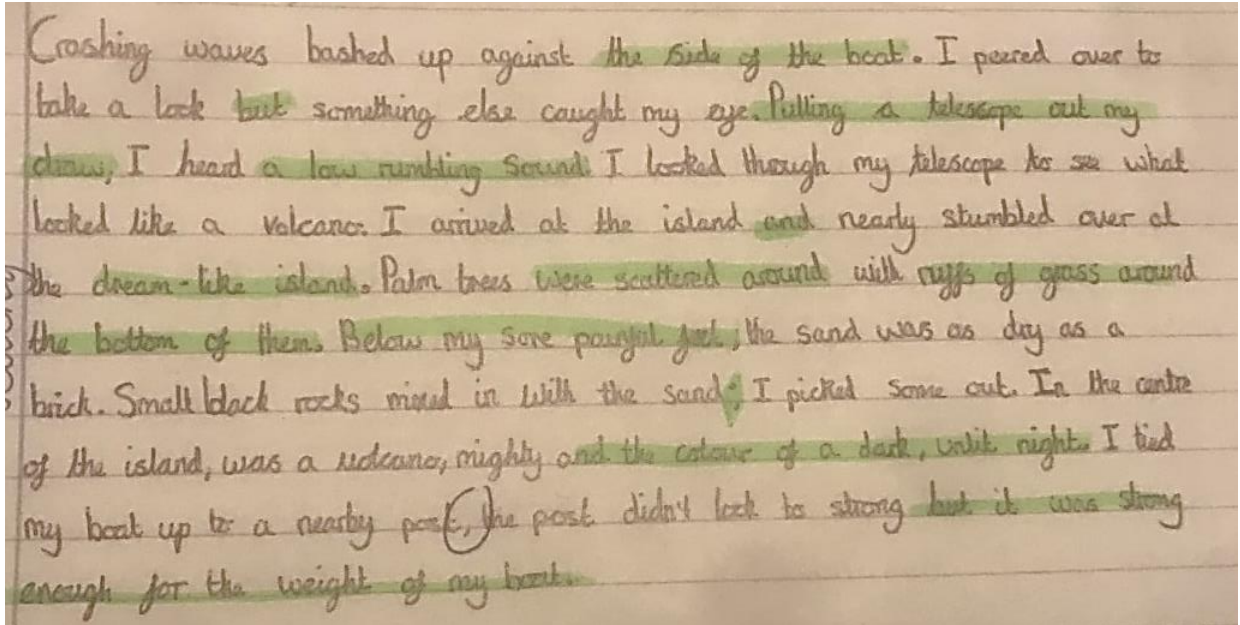 Crashing waves bashed up against the side of the boat. I peered over to
take a look but something else caught my eye. Pulling a telescope out my
draw, I heard a low rumbling sound. I looked though my telescope to see what
looked like a volcano. I arrived at the island and nearly stumbled over at
the dream-like island. Palm trees were scattered around with ruffs of grass around
the bottom of them. Below my sore painful feet, the sand was as dry as a
brick. Small black rocks mixed in with the sand; I picked some out. In the centre
of the island, was a volcano, mighty and the colour of a dark, unlit night. I tied
my boat up to a nearby post, the post didn't look to strong but it was strong
enough for the weight of my boat.